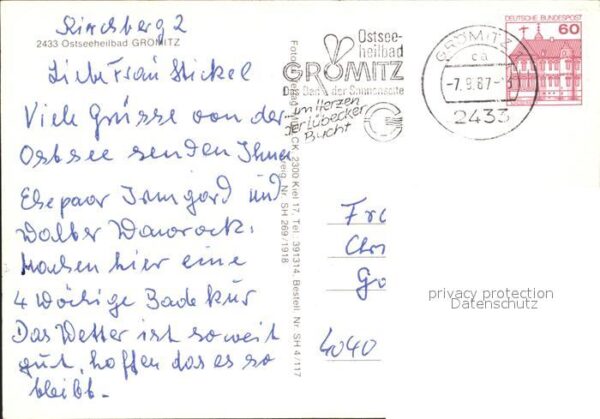 Kirschberg 2
2433 Ostseeheilbad GRÖMITZ
Liebe Frau Stickel
Viele Grüsse von der
Ostsee senden Ihnen
Ehepaar Irmgard und
Walter
Machen hier eine
4 Wöchige Badekur
Das Wetter ist soweit
gut, hoffen das es so
bleibt.
Ostsee-
heilbad
GRÖMITZ
Das Bad der Sonnenseite
...im Herzen
der Lübecker
Bucht
GRÖMITZ
ca
-7.9.87-
2433
DEUTSCHE BUNDESPOST
60
2300 Kiel 17, Tel. 391314, Bestell. Nr. SH 4/117
Nr. SH 269/1918
Fra
Chri
Go
4040
privacy protection
Datenschutz